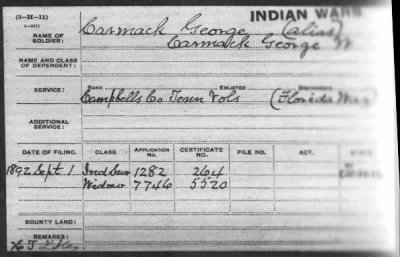 (3—3E—11)
INDIAN WARS
NAME OF SOLDIER: Carmack George (alias)
Carmack George W
NAME AND CLASS OF DEPENDENT:
RANK ENLISTED DISCHARGED
SERVICE: Campbells Co Tenn Vols (Florida War)
ADDITIONAL SERVICE:
DATE OF FILING. CLASS. APPLICATION NO. CERTIFICATE NO. FILE NO. ACT. STATE
1892 Sept 1 Ind Sur 1282 264 Tenn
Widow 7746 5520
BOUNTY LAND:
REMARKS: